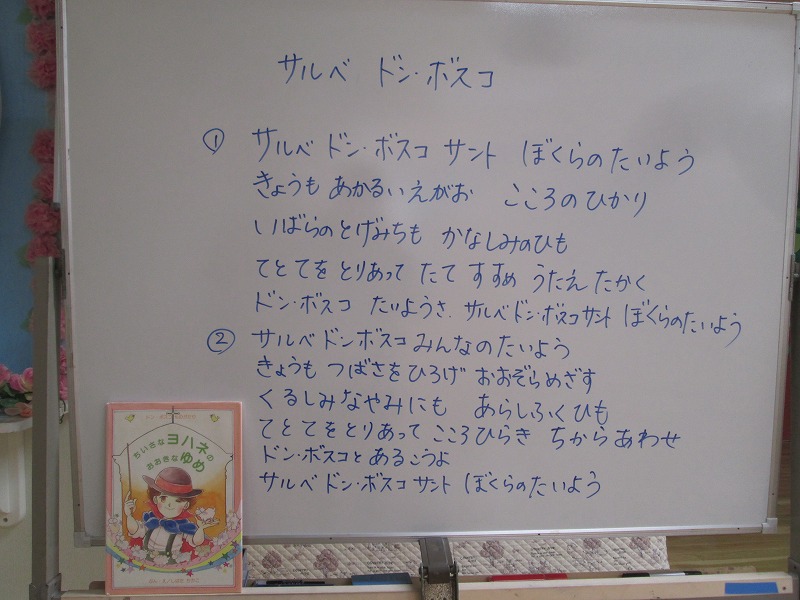 サルベ ドン・ボスコ
① サルベ ドン・ボスコ サント ぼくらのたいよう
きょうも あかるいえがお こころのひかり
いばらのとげみちも かなしみのひも
てとてを とりあって たて すすめ うたえ たかく
ドン・ボスコ たいようさ. サルベ ドン・ボスコ サント ぼくらのたいよう
② サルベ ドンボスコ みんなのたいよう
きょうも つばさをひろげ おおぞらめざす
くるしみなやみにも あらしふくひも
てとてをとりあって こころひらき ちからあわせ
ドン・ボスコと あるこうよ
サルベ ドン・ボスコ サント ぼくらのたいよう
ちいさなヨハネの
おおきなゆめ